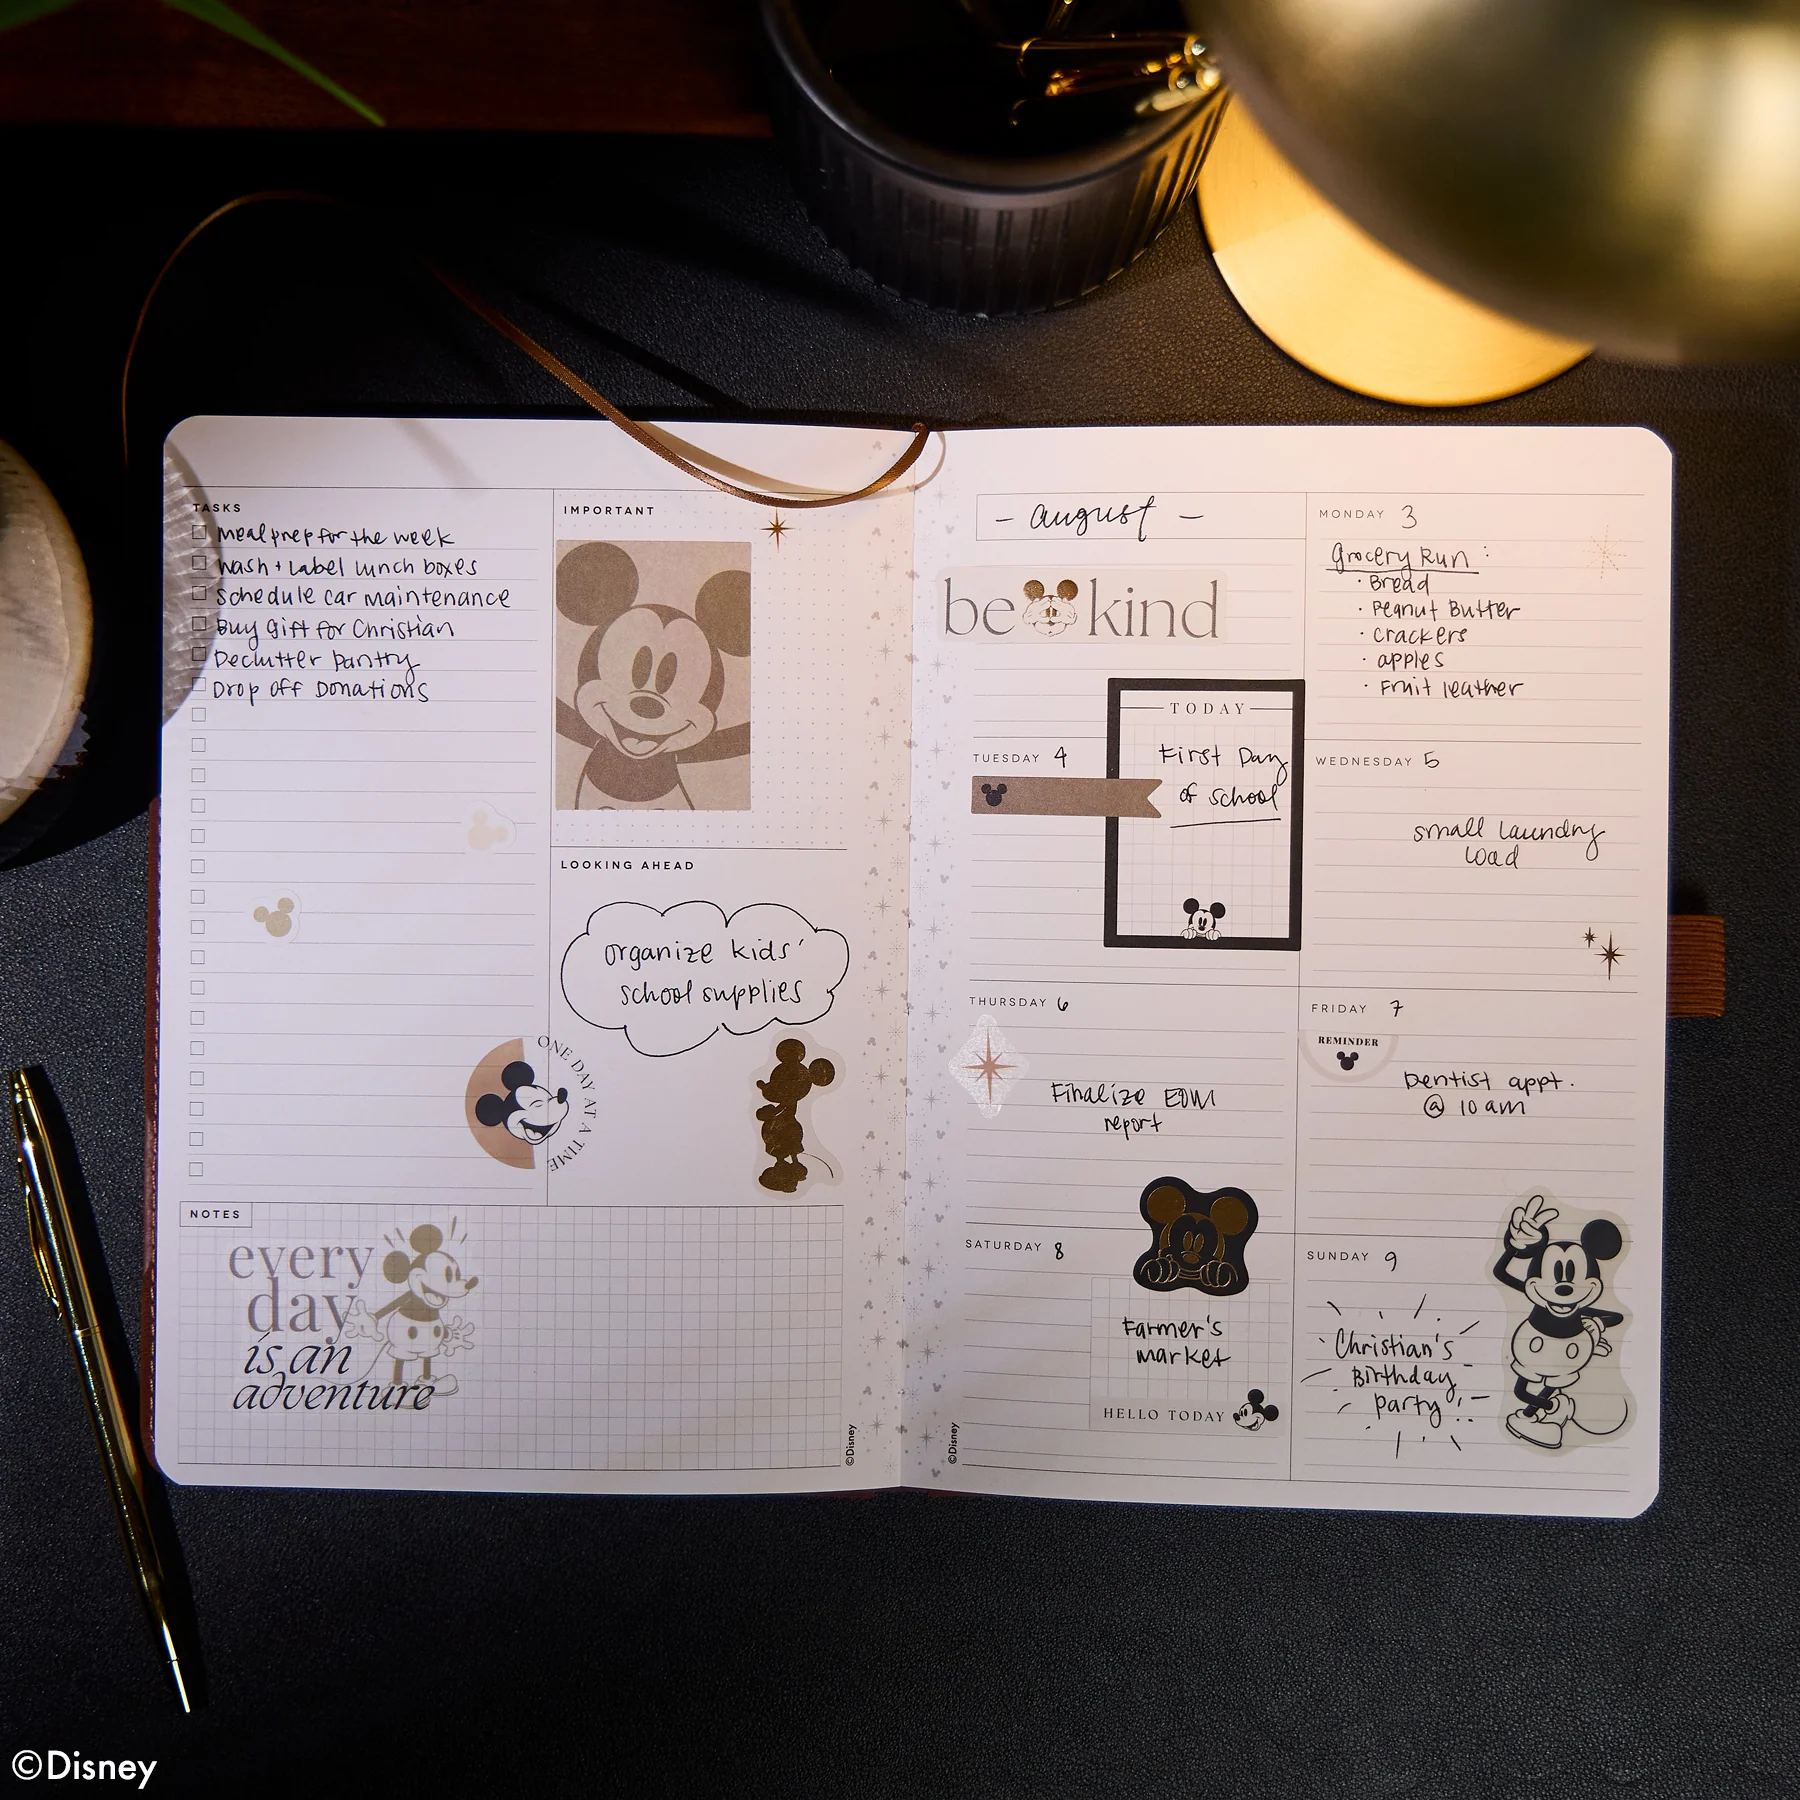 TASKS
Meal prep for the week
Wash + Label lunch boxes
Schedule car maintenance
Buy Gift for Christian
Declutter Pantry
Drop off Donations
IMPORTANT
LOOKING AHEAD
organize kids'
school supplies
ONE DAY AT A TIME
NOTES
every
day
is an
adventure
©Disney
- august -
be kind
MONDAY 3
Grocery Run:
· Bread
· Peanut Butter
· crackers
· apples
· Fruit leather
TUESDAY 4
TODAY
First Day
of school
WEDNESDAY 5
small laundry
load
THURSDAY 6
Finalize EOM
report
FRIDAY 7
REMINDER
Dentist appt.
@ 10 am
SATURDAY 8
Farmer's
market
HELLO TODAY
SUNDAY 9
Christian's
Birthday
party!
©Disney
©Disney